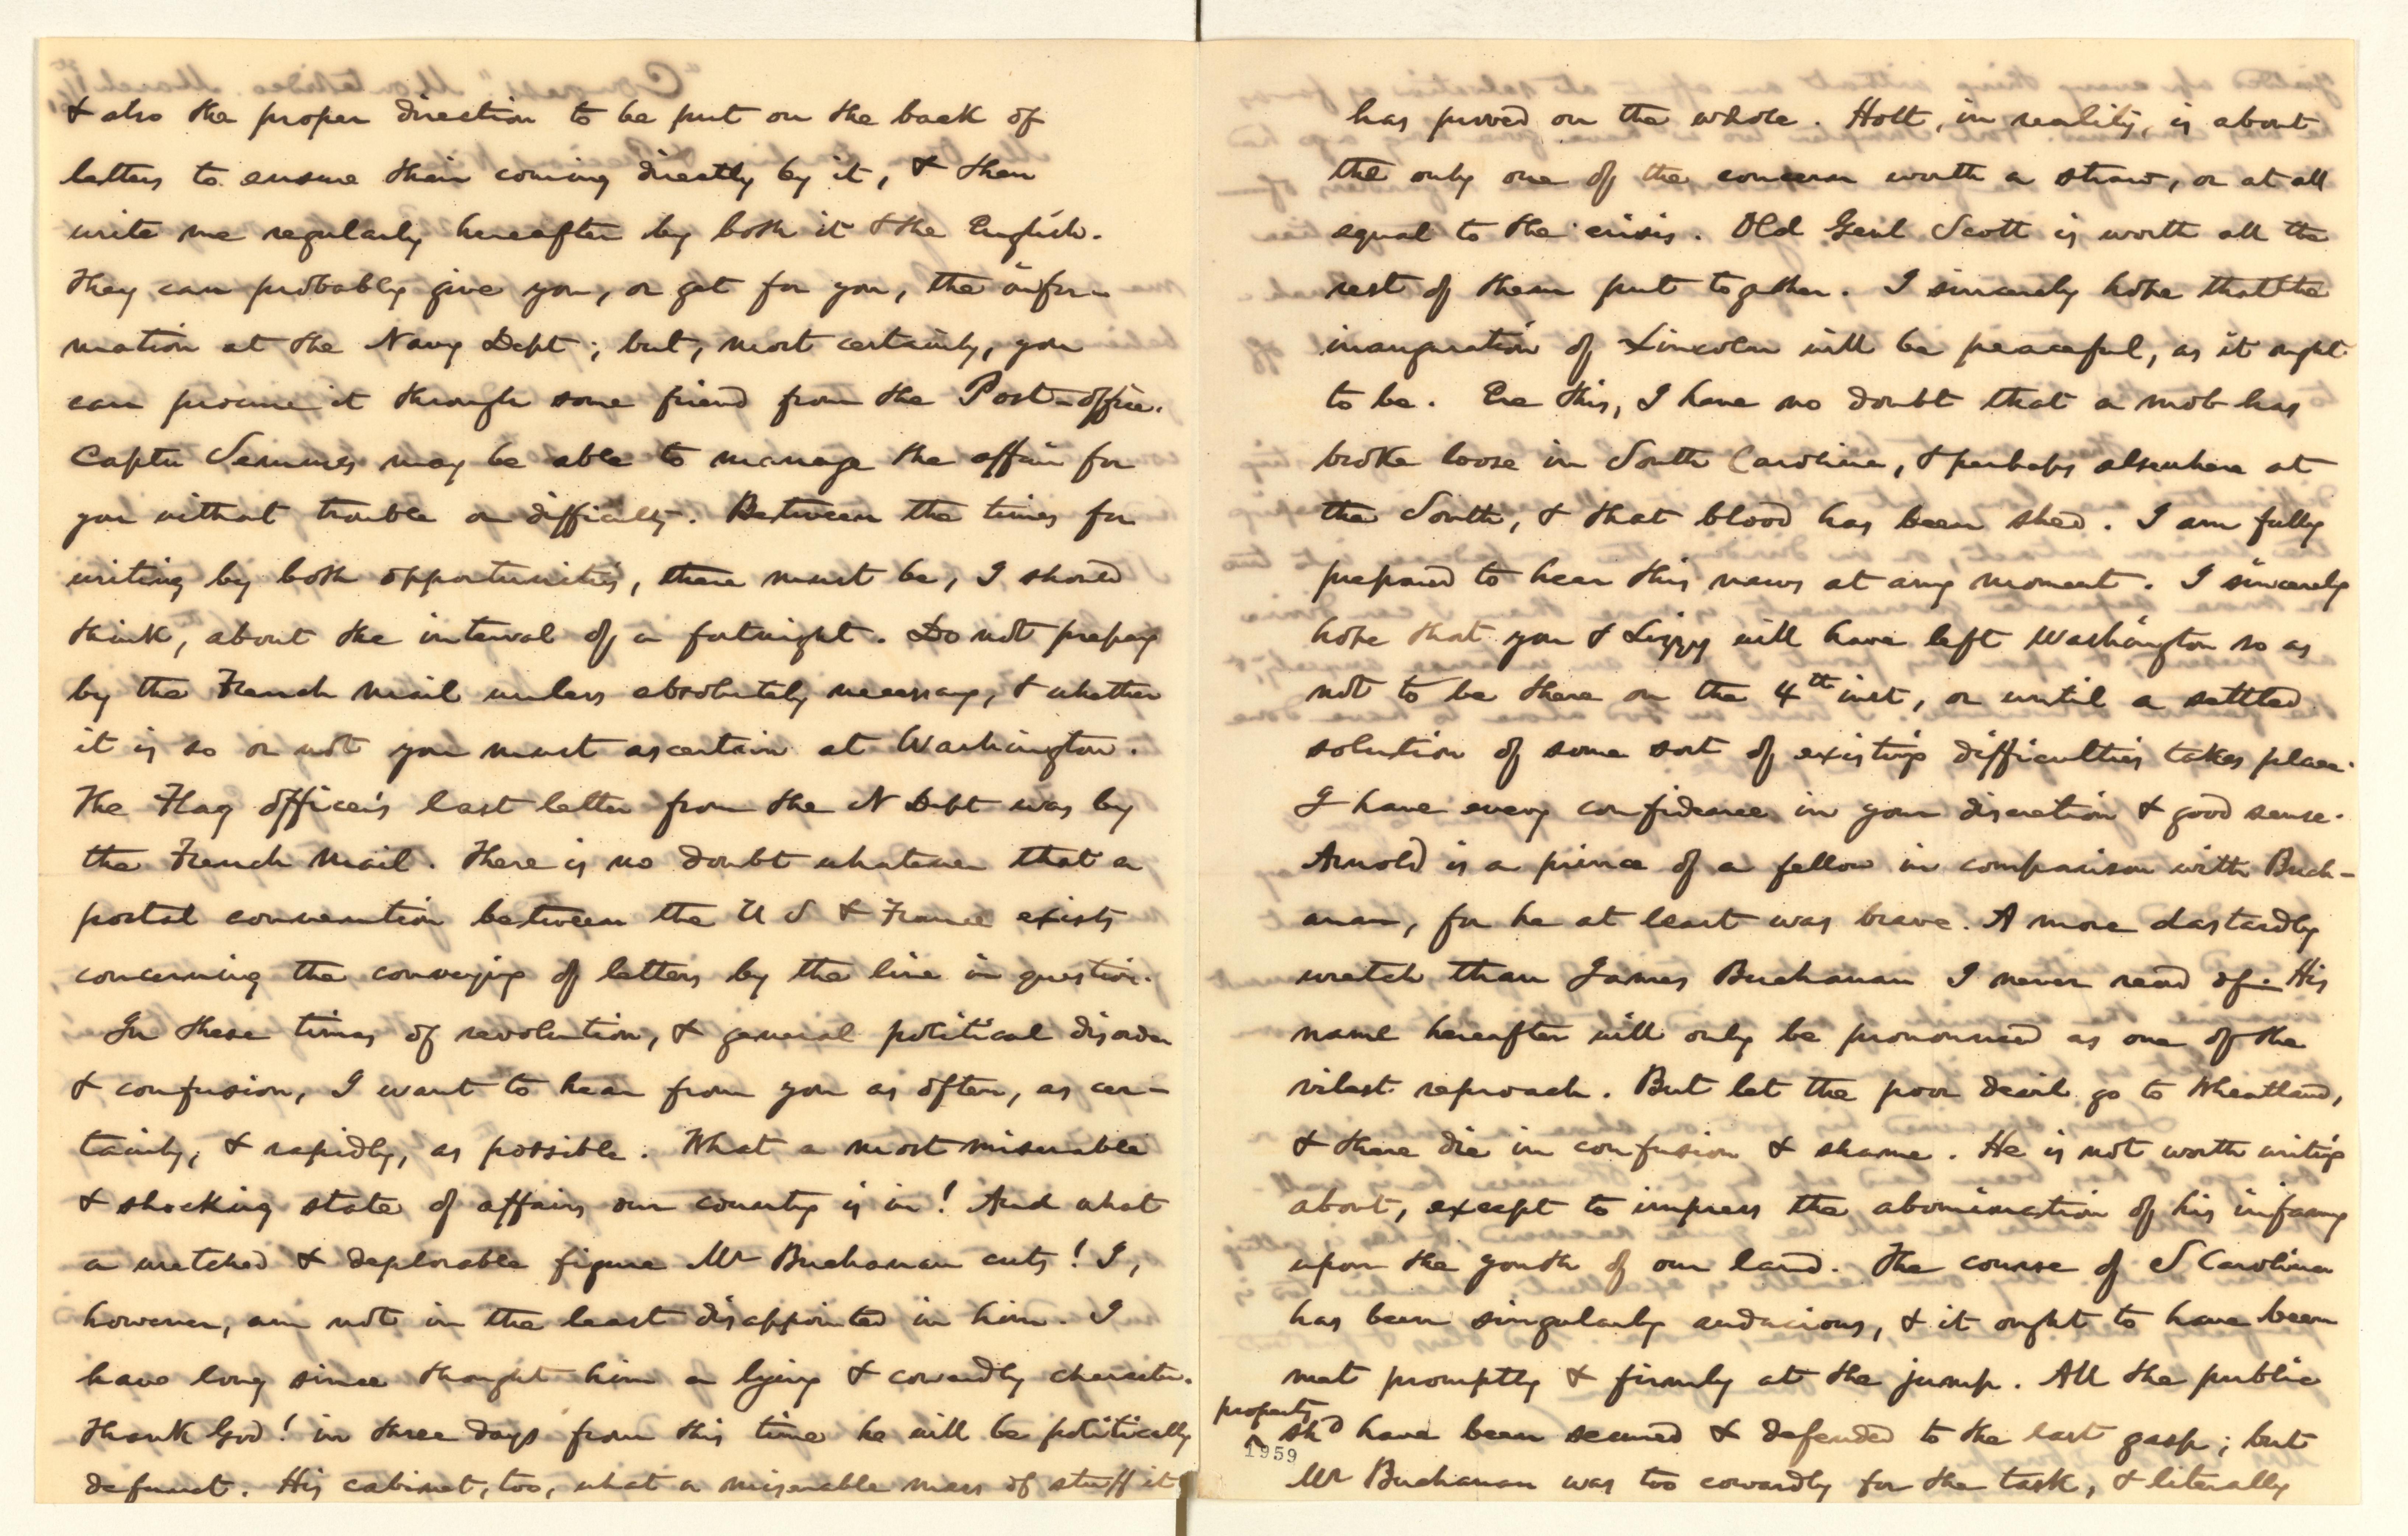 & also the proper direction to be put on the back of
letters to ensure their coming directly by it, & then
write me regularly hereafter by both it & the English.
They can probably give you, or get for you, the infor-
mation at the Navy Dept; but, most certainly, you
can procure it through some friend from the Post-office.
Captn Semmes may be able to manage the affair for
you without trouble or difficulty. Between the times for
writing by both opportunities, there must be, I should
think, about the interval of a fortnight. Do not prepay
by the French mail unless absolutely necessary, & whether
it is so or not you must ascertain at Washington.
The Flag officer's last letter from the N Dept was by
the French Mail. There is no doubt whatever that a
postal convention between the U S & France exists
concerning the conveying of letters by the line in question.
In these times of revolution, & general political disorder
& confusion, I want to hear from you as often, as cer-
tainly, & rapidly, as possible. What a most miserable
& shocking state of affairs our country is in! And what
a wretched & deplorable figure Mr Buchanan cuts! I,
however, am not in the least disappointed in him. I
have long since thought him a lying & cowardly character.
Thank God! in three days from this time he will be politically
defunct. His cabinet, too, what a miserable mass of stuff it
has proved on the whole. Holt, in reality, is about
the only one of the concern worth a straw, or at all
equal to the crisis. Old Genl Scott is worth all the
rest of them put together. I sincerely hope that the
inauguration of Lincoln will be peaceful, as it ought
to be. Ere this, I have no doubt that a mob has
broke loose in South Carolina, & perhaps elsewhere at
the South, & that blood has been shed. I am fully
prepared to hear this news at any moment. I sincerely
hope that you & Lizzy will have left Washington so as
not to be there on the 4th inst, or until a settled
solution of some sort of existing difficulties takes place.
I have every confidence in your discretion & good sense.
Arnold is a prince of a fellow in comparison with Buch-
anan, for he at least was brave. A more dastardly
wretch than James Buchanan I never read of. His
name hereafter will only be pronounced as one of the
vilest reproach. But let the poor devil go to Wheatland,
& there die in confusion & shame. He is not worth writing
about, except to impress the abomination of his infamy
upon the youth of our land. The course of S Carolina
has been singularly audacious, & it ought to have been
met promptly & firmly at the jump. All the public
property shd have been secured & defended to the last gasp; but
1959
Mr Buchanan was too cowardly for the task, & literally